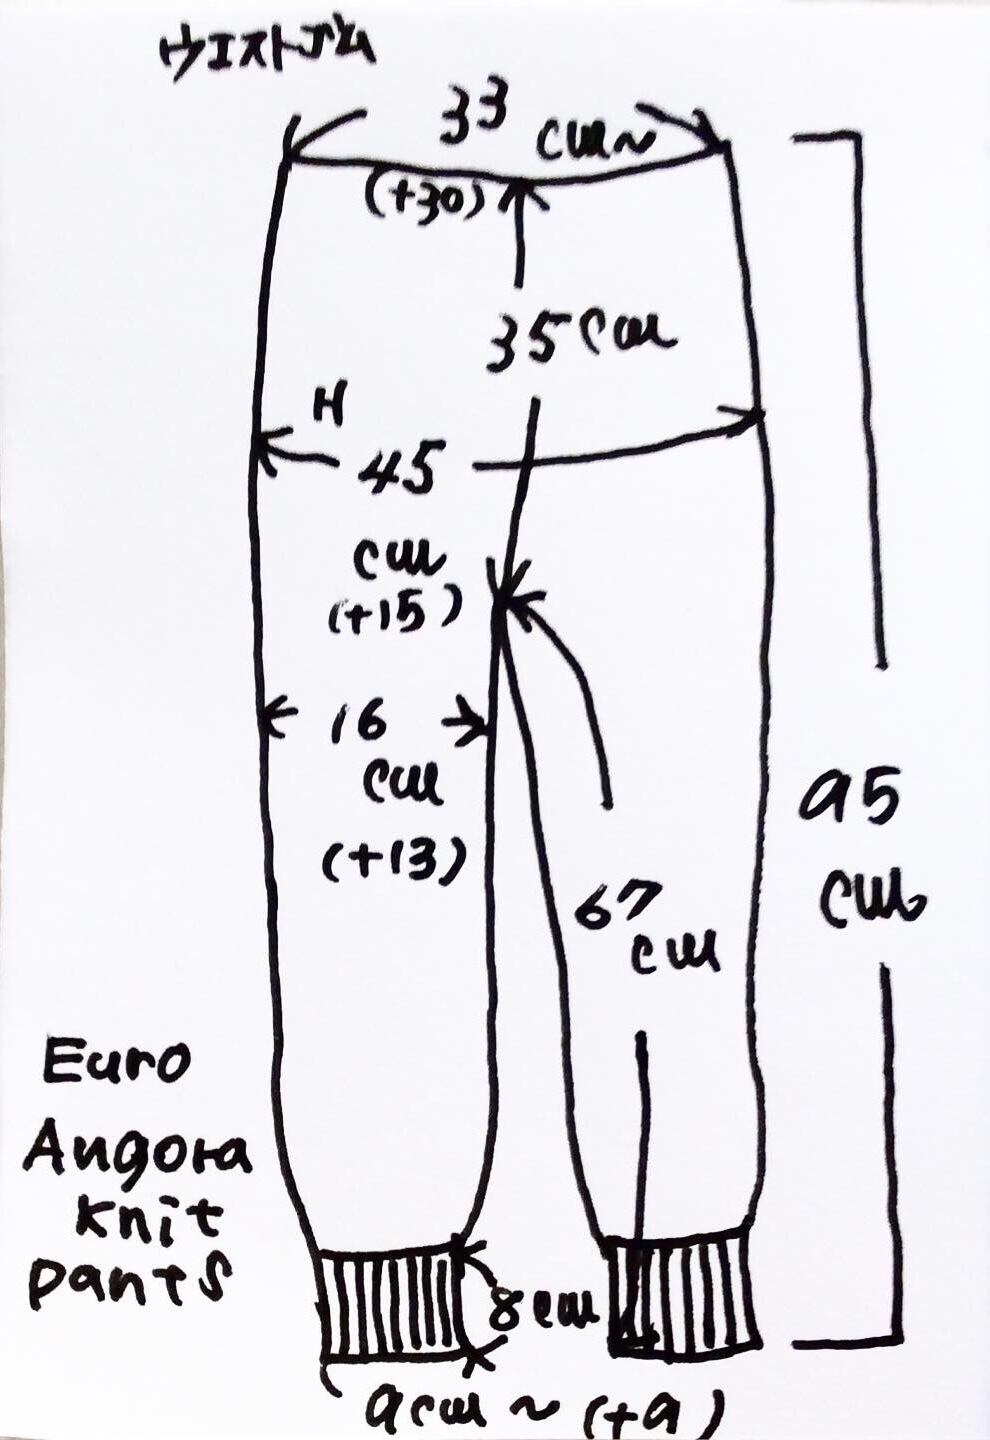 ウエストゴム
33
cm~
(+30)
35cm
H
45
cm
(+15)
16
cm
(+13)
67
cm
95
cm
Euro
Angora
knit
pants
8cm
9cm ~ (+9)